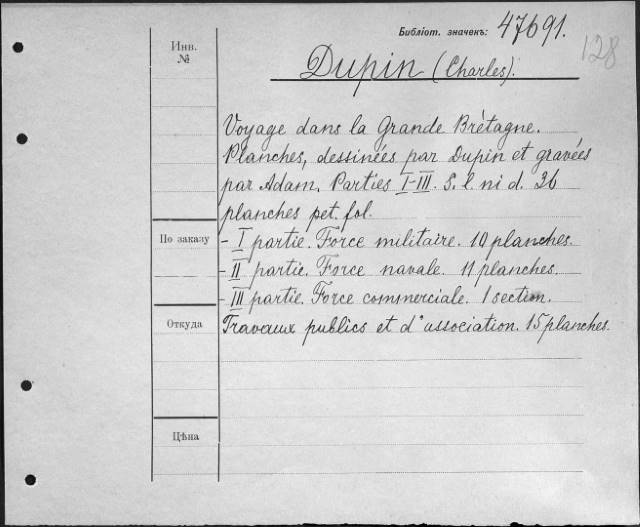 Библіот. значекъ: 47691.
128
Инв.
№
Dupin (Charles).
Voyage dans la Grande Brètagne.
Planches, dessinées par Dupin et gravées
par Adam. Parties I-III. S. l. ni d. 36
planches pet. fol.
По заказу
- I partie. Force militaire. 10 planches.
- II partie. Force navale. 11 planches.
- III partie. Force commerciale. 1 section.
Откуда
Travaux publics et d'association. 15 planches.
Цѣна